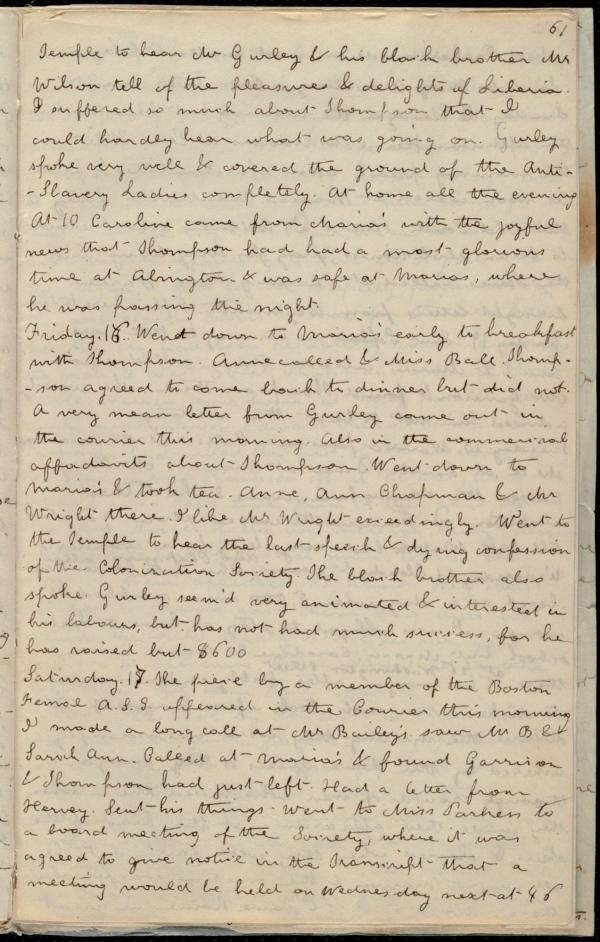 61
Temple to hear Mr Gurley & his black brother Mr
Wilson tell of the pleasures & delights of Liberia.
I suffered so much about Thompson that I
could hardly hear what was going on. Gurley
spoke very well & covered the ground of the Anti-
-Slavery Ladies completely. At home all the evening
At 10 Caroline came from Maria's with the joyful
news that Thompson had had a most glorious
time at Abington & was safe at Marias, where
he was passing the night.
Friday. 16. Went down to Maria's early to breakfast
with Thompson. Anne called & Miss Ball. Thomp-
-son agreed to come back to dinner but did not.
A very mean letter from Gurley came out in
the courier this morning. Also in the commercial
affadavits about Thompson. Went down to
Maria's & took tea. Anne, Ann Chapman & Mr
Wright there. I like Mr Wright exceedingly. Went to
the Temple to hear the last speech & dying confession
of the Colonization Society The black brother also
spoke. Gurley seem'd very animated & interested in
his labours, but has not had much success, for he
has raised but $600
Saturday. 17. The piece by a member of the Boston
Femal A.S.S. appeared in the Courier this morning
I made a long call at Mr Bailey's saw Mr B &
Sarah Ann. Called at Maria's & found Garrison
& Thompson had just left. Had a letter from
Hervey. Sent his things. Went to Miss Parkess to
a board meeting of the Society, where it was
agreed to give notice in the Transcript that a
meeting would be held on Wednesday next at 46